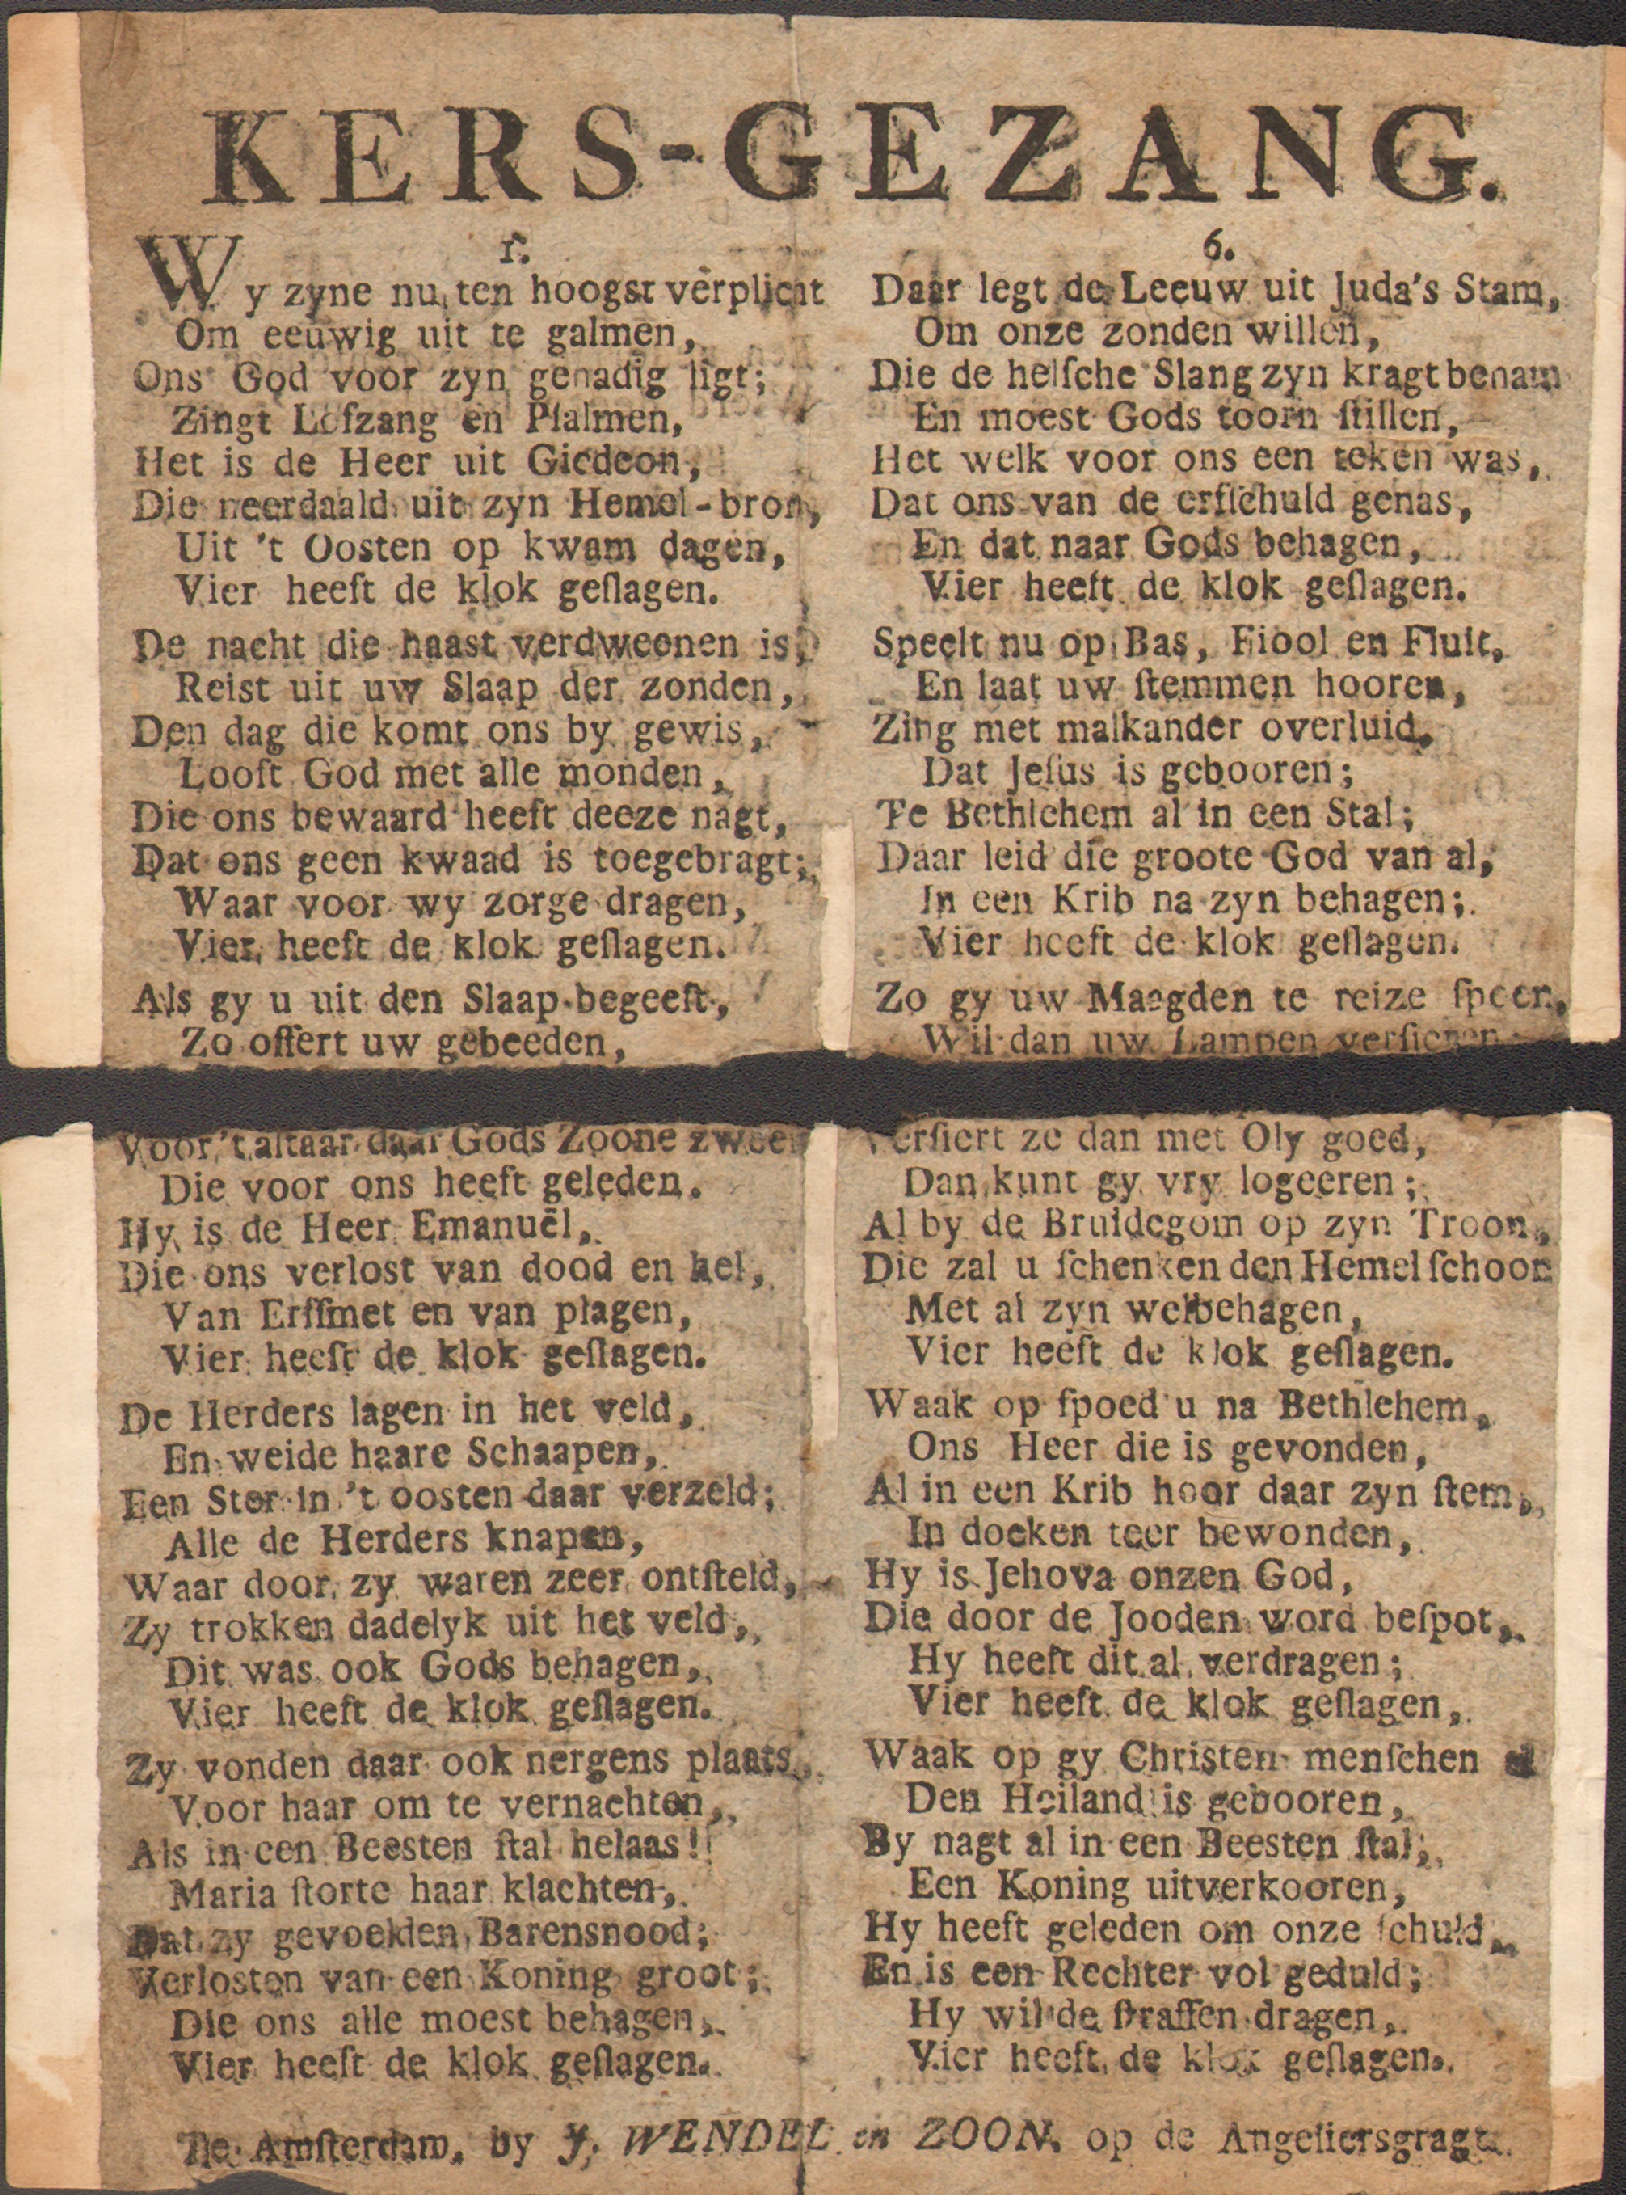 KERS-GEZANG.
1.
Wy zyne nu ten hoogst verplicht
Om eeuwig uit te galmen,
Ons God voor zyn genadig ligt;
Zingt Lofzang en Pſalmen,
Het is de Heer uit Giedeon,
Die neerdaald uit zyn Hemel-bron,
Uit 't Oosten op kwam dagen,
Vier heeft de klok geſlagen.
De nacht die haast verdweenen is,
Reist uit uw Slaap der zonden,
Den dag die komt ons by gewis,
Looft God met alle monden,
Die ons bewaard heeft deeze nagt,
Dat ons geen kwaad is toegebragt;
Waar voor wy zorge dragen,
Vier heeft de klok geſlagen.
Als gy u uit den Slaap begeeft,
Zo offert uw gebeeden,
Voor 't altaar daar Gods Zoone zweeft
Die voor ons heeft geleden.
Hy is de Heer Emanuël,
Die ons verlost van dood en hel,
Van Erfſmet en van plagen,
Vier heeft de klok geſlagen.
De Herders lagen in het veld,
En weide haare Schaapen,
Een Ster in 't oosten daar verzeld;
Alle de Herders knapen,
Waar door zy waren zeer ontſteld,
Zy trokken dadelyk uit het veld,
Dit was ook Gods behagen,
Vier heeft de klok geſlagen.
Zy vonden daar ook nergens plaats,
Voor haar om te vernachten,
Als in een Beesten ſtal helaas!
Maria ſtorte haar klachten,
Dat zy gevoelden Barensnood;
Verlosten van een Koning groot;
Die ons alle moest behagen,
Vier heeft de klok geſlagen.
6.
Daar legt de Leeuw uit Juda's Stam,
Om onze zonden willen,
Die de helſche Slang zyn kragt benam
En moest Gods toorn ſtillen,
Het welk voor ons een teken was,
Dat ons van de erfſchuld genas,
En dat naar Gods behagen,
Vier heeft de klok geſlagen.
Speelt nu op Bas, Fiool en Fluit,
En laat uw ſtemmen hooren,
Zing met malkander overluid,
Dat Jeſus is gebooren;
Te Bethlehem al in een Stal;
Daar leid die groote God van al,
In een Krib na zyn behagen;
Vier heeft de klok geſlagen.
Zo gy uw Maagden te reize ſpoen,
Wil dan uw Lampen verſieren
Verſiert ze dan met Oly goed,
Dan kunt gy vry logeeren;
Al by de Bruidegom op zyn Troon,
Die zal u ſchenken den Hemel ſchoon
Met al zyn welbehagen,
Vier heeft de klok geſlagen.
Waak op ſpoed u na Bethlehem,
Ons Heer die is gevonden,
Al in een Krib hoor daar zyn ſtem,
In doeken teer bewonden,
Hy is Jehova onzen God,
Die door de Jooden word beſpot,
Hy heeft dit al verdragen;
Vier heeft de klok geſlagen,
Waak op gy Christen menſchen al
Den Heiland is gebooren,
By nagt al in een Beesten ſtal;
Een Koning uitverkooren,
Hy heeft geleden om onze ſchuld,
En is een Rechter vol geduld;
Hy wilde ſtraffen dragen,
Vier heeft de klok geſlagen.
Te Amſterdam, by J. WENDEL en ZOON. op de Angeliersgragt.